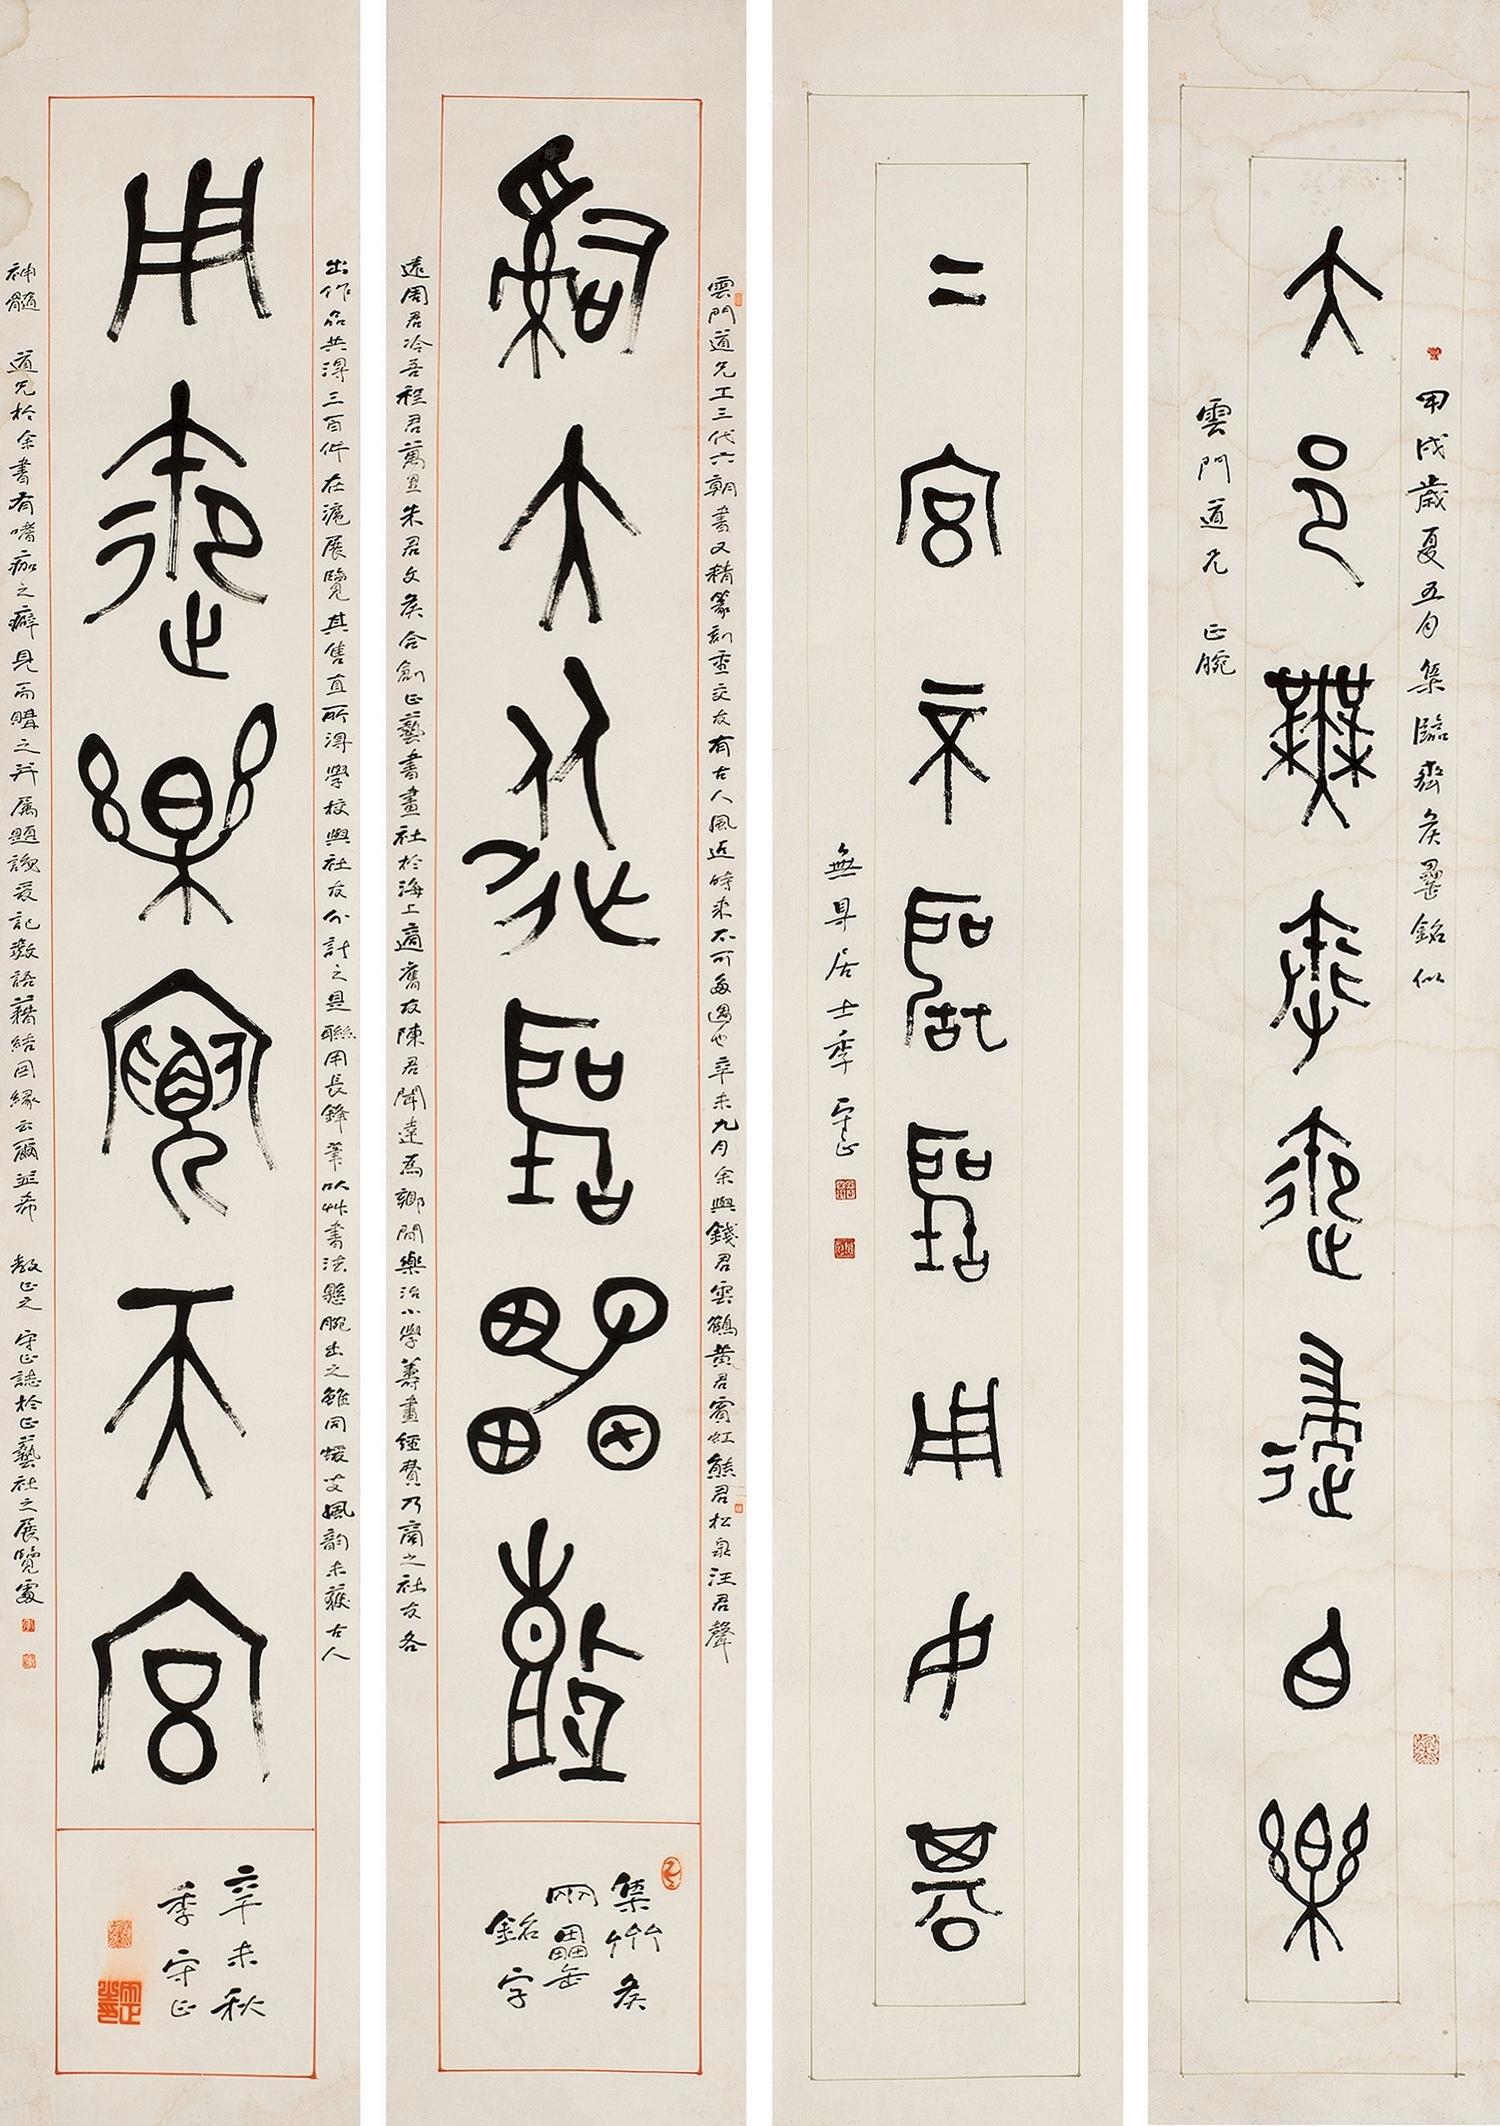 大邑無奉御歸白樂
甲戌歲夏五月集臨齊侯罍銘似
雲門道兄 正腕
二宮
聖用中
無㝵居士季守正
嗣大
聖
鼓
雲門道兄工三代六朝書又精篆刻重交友有古人風近時來不可多遇也辛未九月余與錢君雲鶴黃君賓虹熊君松泉汪君聲
遠周君冷吾程君萬里朱君文矦合創正藝書畫社於海上適舊友陳君聞達為鄉間樂治小學籌畫經費乃商之社友各
集齊侯
兩罍
銘字
用御樂寶天宮
出作品共得三百件在滬展覽其售直所得學校與社友分計之是聯用長鋒筆以艸書法懸腕出之雖同蝯叟風韵未獲古人
神髓 道兄於余書有嗜痂之癖見而購之并屬題識爰記數語藉結因緣云爾並希 教正之 守正誌於正藝社之展覽處
辛未秋
季守正